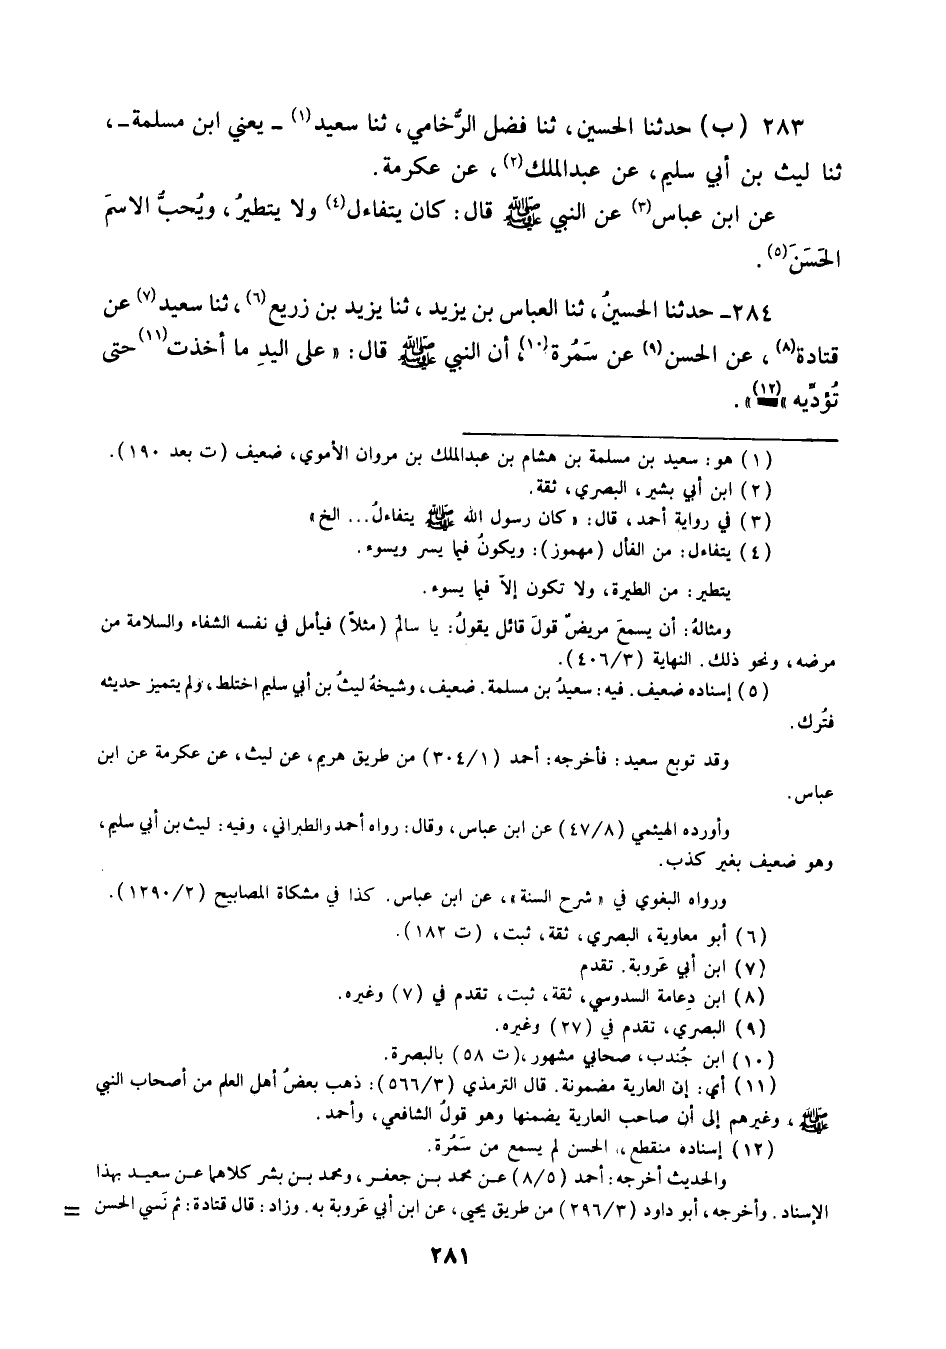 ٢٨٣ (ب) حدثنا الحسين، ثنا فضل الرُّخامي، ثنا سعيد(١) ـ يعني ابن مسلمة ـ،
ثنا ليث بن أبي سليم، عن عبدالملك(٢)، عن عكرمة.
عن ابن عباس(٣) عن النبي ﷺ قال: كان يتفاءل(٤) ولا يتطيرُ، ويُحبُّ الاسمَ
الحَسَنَ(٥).
٢٨٤ـ حدثنا الحسينُ، ثنا العباس بن يزيد، ثنا يزيد بن زريع(٦)، ثنا سعيد(٧) عن
قتادة(٨)، عن الحسن(٩) عن سَمُرة(١٠)، أن النبي ﷺ قال: «على اليدِ ما أخذت(١١) حتى
تُؤدِّيه»(١٢)».
(١) هو: سعيد بن مسلمة بن هشام بن عبدالملك بن مروان الأموي، ضعيف (ت بعد ١٩٠).
(٢) ابن أبي بشير، البصري، ثقة.
(٣) في رواية أحمد، قال: «كان رسول الله ﷺ يتفاءلُ... الخ»
(٤) يتفاءل: من الفأل (مهموز): ويكونُ فيما يسر ويسوء.
يتطير: من الطيرة، ولا تكون إلاّ فيما يسوء.
ومثالهُ: أن يسمعَ مريضٌ قولَ قائل يقولُ: يا سالم (مثلاً) فيأمل في نفسه الشفاء والسلامة من
مرضه، ونحو ذلك. النهاية (٤٠٦/٣).
(٥) إسناده ضعيف. فيه: سعيدُ بن مسلمة. ضعيف، وشيخهُ ليثُ بن أبي سليم اختلط، ولم يتميز حديثه
فتُرك.
وقد توبع سعيد: فأخرجه: أحمد (٣٠٤/١) من طريق هريم، عن ليث، عن عكرمة عن ابن
عباس.
وأورده الهيثمي (٤٧/٨) عن ابن عباس، وقال: رواه أحمد والطبراني، وفيه: ليث بن أبي سليم،
وهو ضعيف بغير كذب.
ورواه البغوي في «شرح السنة»، عن ابن عباس. كذا في مشكاة المصابيح (١٢٩٠/٢).
(٦) أبو معاوية، البصري، ثقة، ثبت، (ت ١٨٢).
(٧) ابن أبي عَروبة. تقدم
(٨) ابن دِعامة السدوسي، ثقة، ثبت، تقدم في (٧) وغيره.
(٩) البصري، تقدم في (٢٧) وغيره.
(١٠) ابن جُندب، صحابي مشهور،(ت ٥٨) بالبصرة.
(١١) أي: إن العارية مضمونة. قال الترمذي (٥٦٦/٣): ذهب بعضُ أهل العلم من أصحاب النبي
ﷺ، وغيرهم إلى أن صاحب العارية يضمنها وهو قولُ الشافعي، وأحمد.
(١٢) إسناده منقطع،. الحسن لم يسمع من سَمُرة.
والحديث أخرجه: أحمد (٨/٥) عن محمد بن جعفر، ومحمد بن بشر كلاهما عن سعيد بهذا
الإسناد. وأخرجه، أبو داود (٢٩٦/٣) من طريق يحيى، عن ابن أبي عَروبة به. وزاد: قال قتادة: ثم نَسي الحسن =
٢٨١